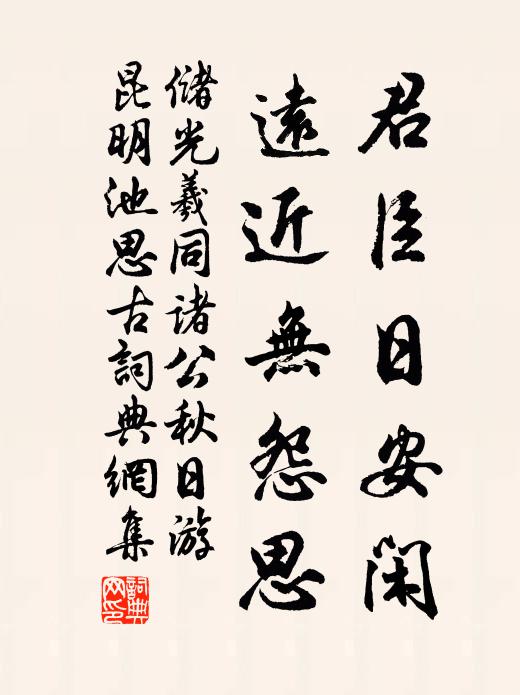 君臣日安閑
遠近無怨思
儲光羲同諸公秋日游
昆明池思古詞典網集
詞典網印